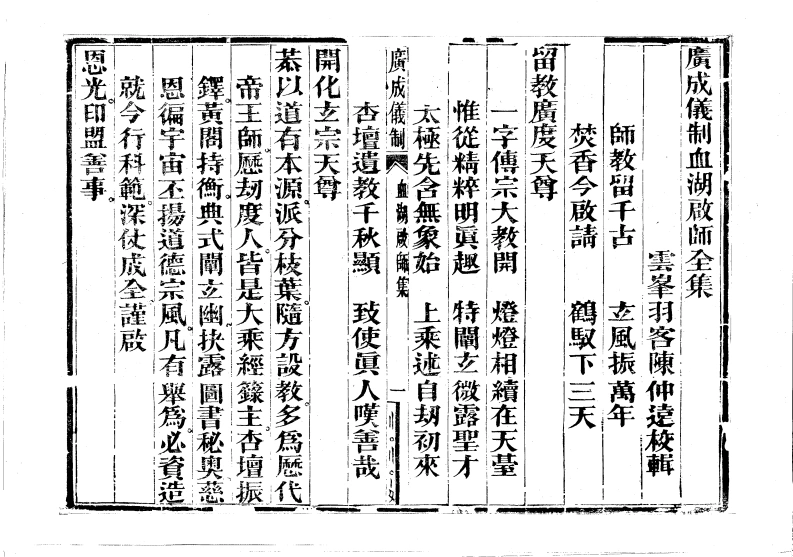 廣成儀制血湖啟師全集
雲峯羽客陳仲遠校輯
師教留千古　玄風振萬年
焚香今啟請　鶴馭下三天
留教廣度天尊
一字傳宗大教開　燈燈相續在天臺
惟從精粹明眞趣　特闡玄微露聖才
太極先含無象始　上乘述自刼初來
廣成儀制　血湖啟師集　一
杏壇遺教千秋顯　致使眞人嘆善哉
開化玄宗天尊
恭以道有本源。派分枝葉。隨方設教。多爲歷代
帝王師。歷刼度人。皆是大乘經籙主。杏壇振
鐸。黃閣持衡。典式闡玄幽。抉露圖書秘奧。慈
恩徧宇宙。丕揚道德宗風。凡有舉爲。必資造
就。今行科範。深仗成全。謹啟
恩光。印盟善事。